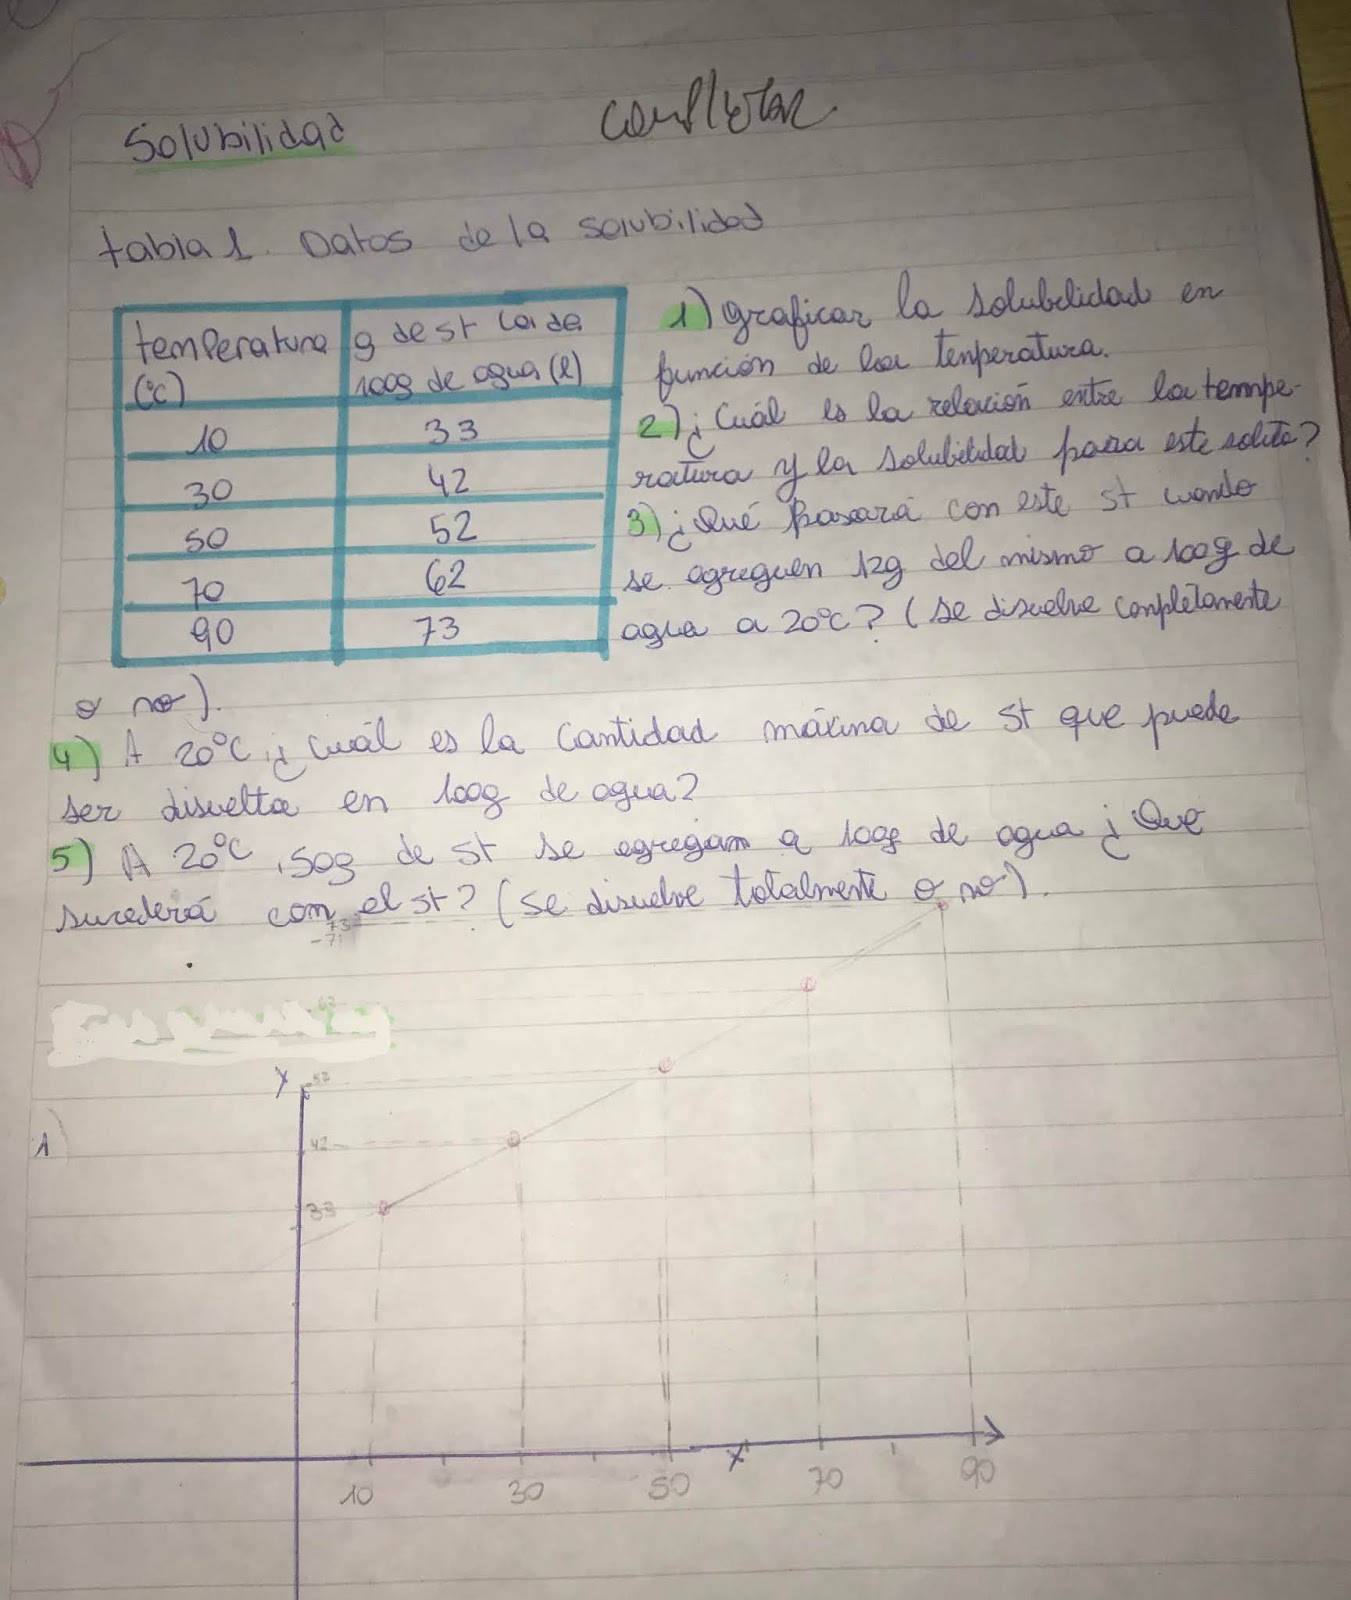 Solubilidad
completar
tabla 1. Datos de la solubilidad
temperatura (°C)
g de st cada 100g de agua (l)
10 33
30 42
50 52
70 62
90 73
1) graficar la solubilidad en
función de la temperatura.
2) ¿Cuál es la relación entre la tempe-
ratura y la solubilidad para este solito?
3) ¿Qué pasará con este st cuando
se agreguen 12g del mismo a 100g de
agua a 20°C? (se disuelve completamente
o no).
4) A 20°C, ¿Cuál es la cantidad máxima de st que puede
ser disuelta en 100g de agua?
5) A 20°C, 50g de st se agregam a 100g de agua ¿Que
sucederá con el st? (se disuelve totalmente o no).
73
62
y
52
1)
42
33
x
10 30 50 70 90